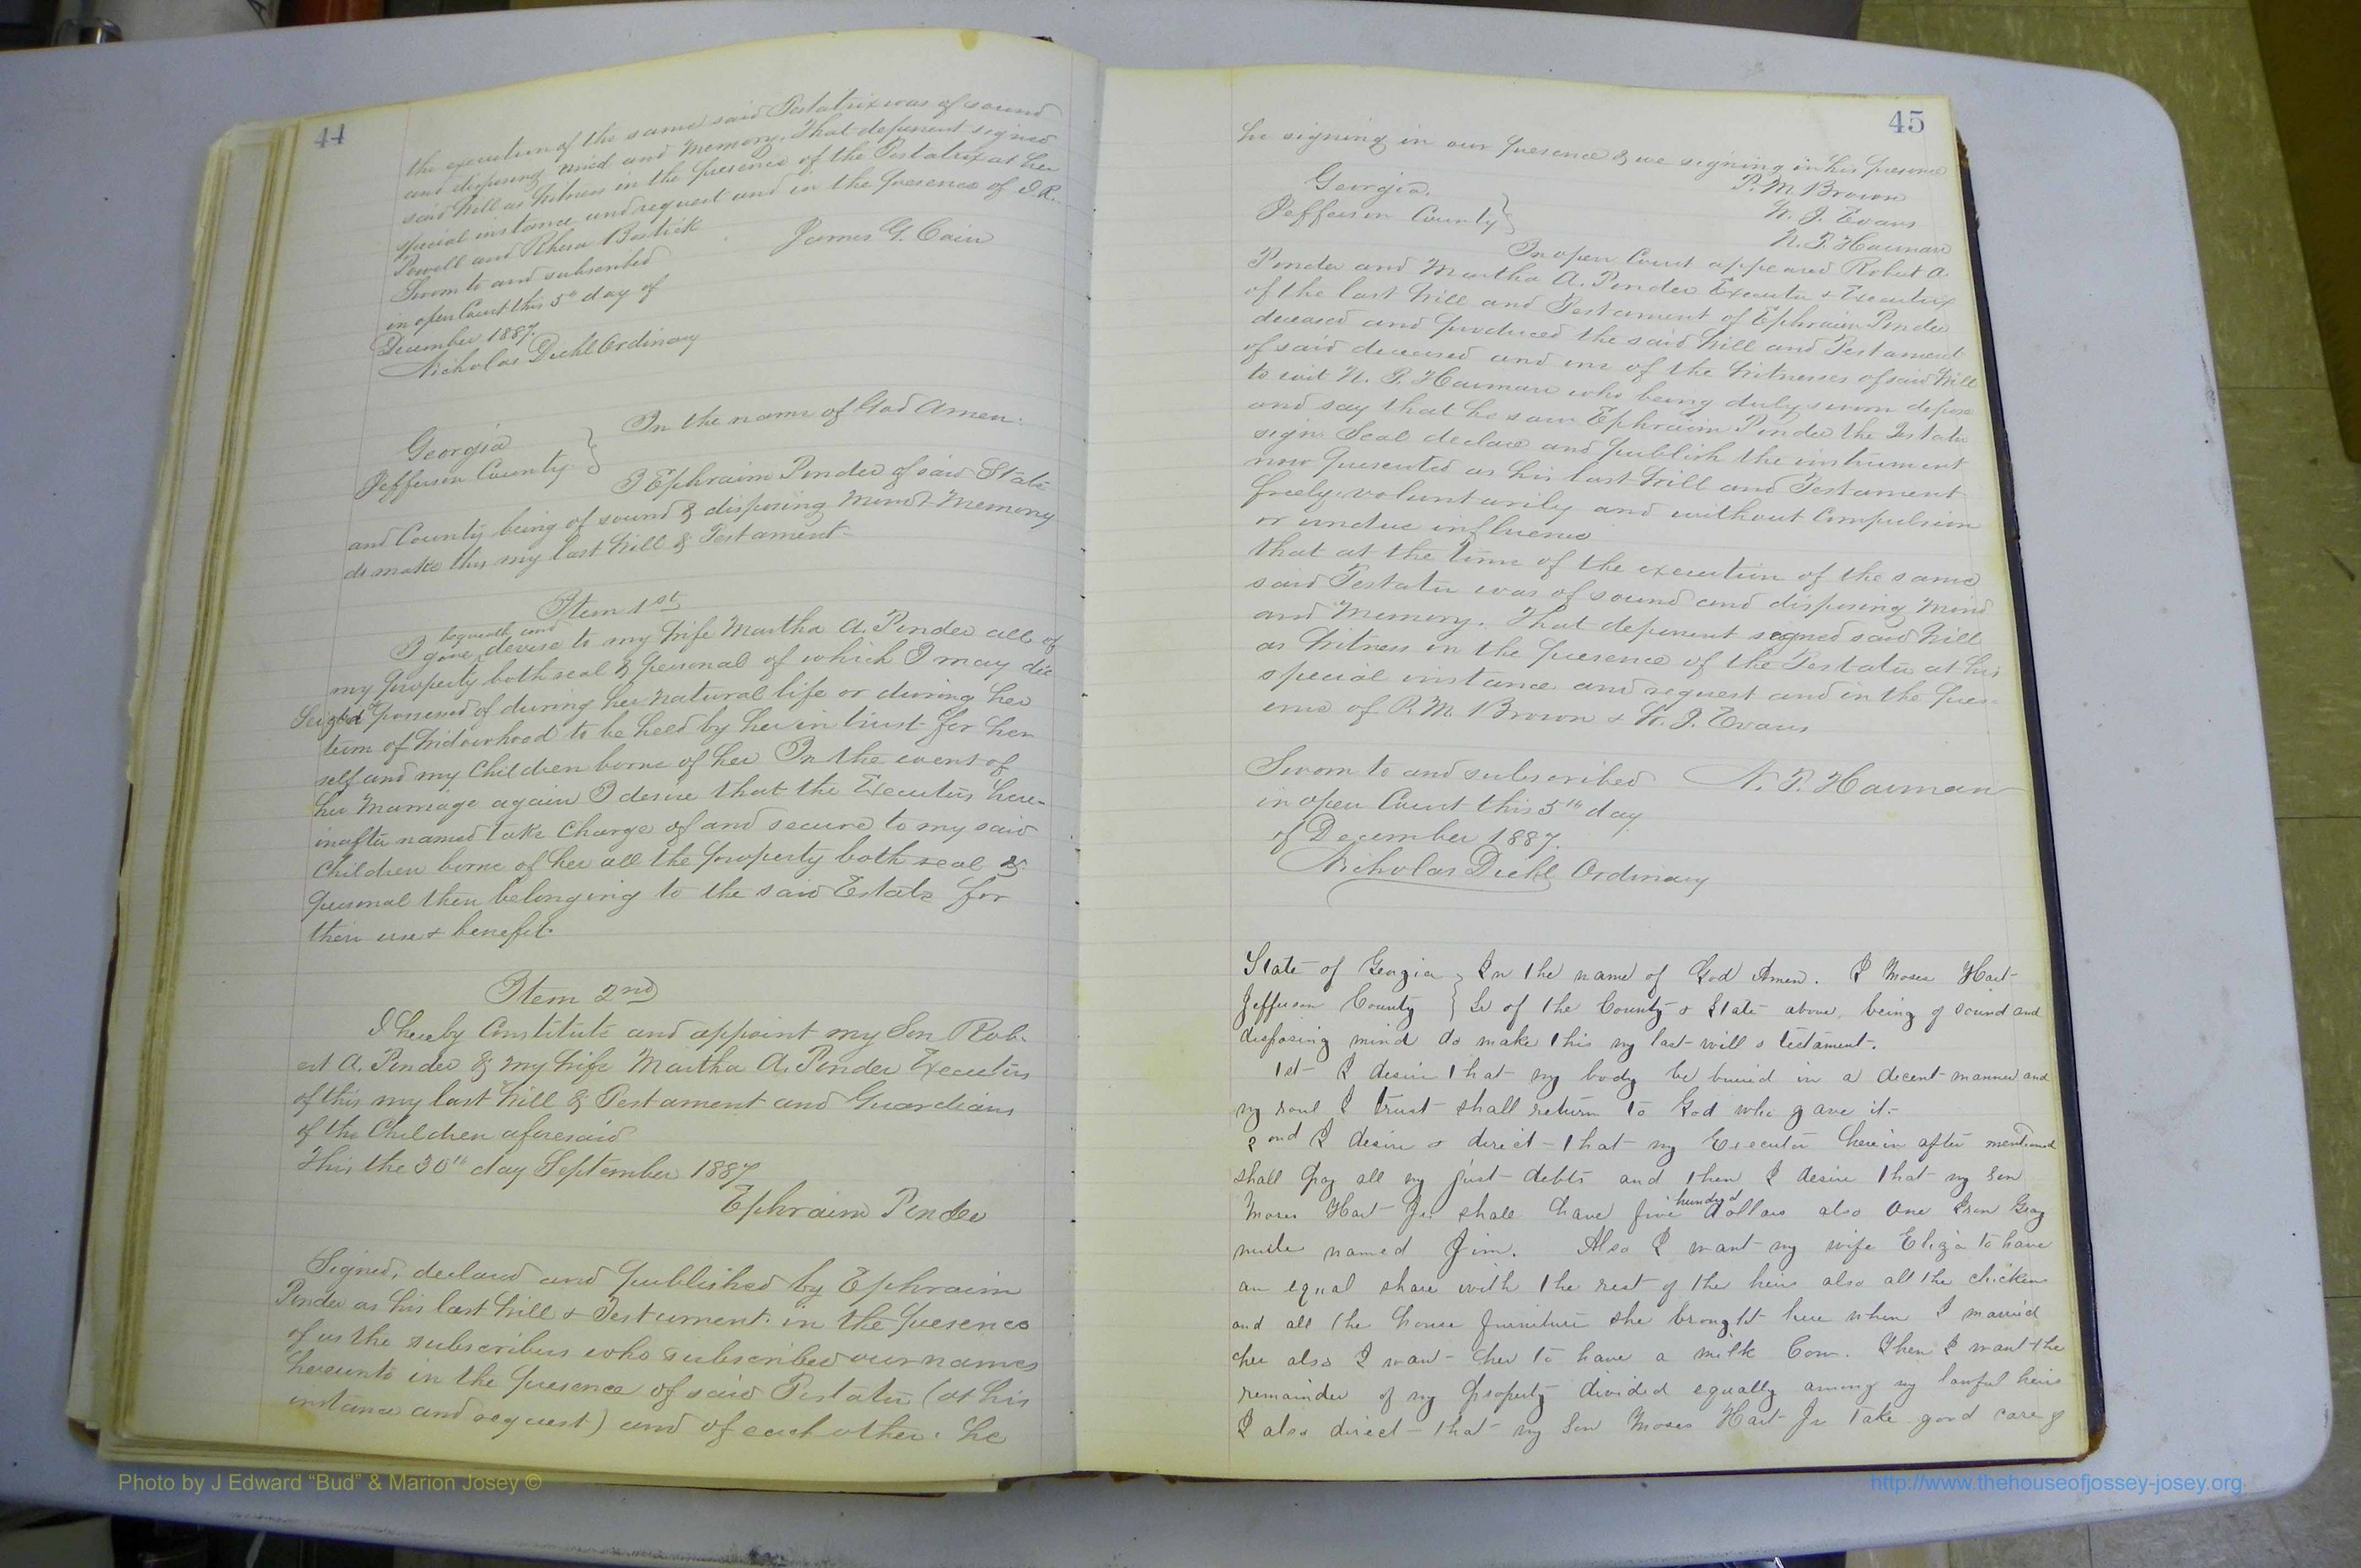 44
the execution of the same said Testatrix was of sound
and disposing mind and memory. That deponent signed
said Will as Witness in the presence of the Testatrix at her
special instance and request and in the presence of J. R.
Powell and Rhesa Bostick
Sworn to and subscribed James G. Cain
in open Court this 5th day of
December 1887.
Nicholas Diehl Ordinary
Georgia } In the name of God Amen.
Jefferson County }
I Ephraim Ponder of said State
and County being of sound & disposing Mind & Memory
do make this my last Will & Testament
Item 1st
bequeath and
I give, devise to my Wife Martha A. Ponder all of
my property both real & personal of which I may die
possessed of during her natural life or during her
term of Widowhood to be held by her in trust for her
self and my Children borne of her In the event of
her Marriage again I desire that the Executors here-
inafter named take Charge of and secure to my said
Children borne of her all the property both real &
personal then belonging to the said Estate for
their use & benefit.
Item 2nd
I hereby Constitute and appoint my Son Rob-
ert A. Ponder & my Wife Martha A. Ponder Executors
of this my last Will & Testament and Guardians
of the Children aforesaid
This the 30th day September 1887
Ephraim Ponder
Signed, declared and published by Ephraim
Ponder as his last Will & Testament in the presence
of us the subscribers who subscribed our names
hereunto in the presence of said Testator (at his
instance and request) and of each other. he
45
he signing in our presence & we signing in his presence
P. M. Brown
Georgia. W. J. Evans
Jefferson County } N. T. Harman
In open Court appeared Robert A
Ponder and Martha A. Ponder Executor & Executrix
of the last Will and Testament of Ephraim Ponder
deceased and produced the said Will and Testament
of said deceased and one of the Witnesses of said Will
to wit N. T. Harman who being duly sworn depose
and say that he saw Ephraim Ponder the Testator
sign Seal declare and publish the instrument
now presented as his last Will and Testament
freely voluntarily and without Compulsion
or undue influence
that at the time of the execution of the same
said Testator was of sound and disposing Mind
and Memory. That deponent signed said Will
as Witness in the presence of the Testator at his
special instance and request and in the pres-
ence of P. M. Brown & W. J. Evans
Sworn to and subscribed N. T. Harman
in open Court this 5th day
of December 1887.
Nicholas Diehl Ordinary
State of Georgia } In the name of God Amen. I Moses Hart
Jefferson County } Sr of the County & State above, being of sound and
disposing mind do make this my last will & testament.
1st I desire that my body be buried in a decent manner and
my soul I trust shall return to God who gave it.
2ond I desire & direct that my Executor herein after mentioned
shall pay all my just debts and then I desire that my son
hundred
Moses Hart Jr. shall have five dollars also One Iron Gray
mule named Jim. Also I want my wife Eliza to have
an equal share with the rest of the heirs also all the chickens
and all the house furniture she brought here when I married
her also I want her to have a milk Cow. Then I want the
remainder of my property divided equally among my lawful heirs
I also direct that my Son Moses Hart Jr take good care of
Photo by J Edward “Bud” & Marion Josey ©
http://www.thehouseofjossey-josey.org